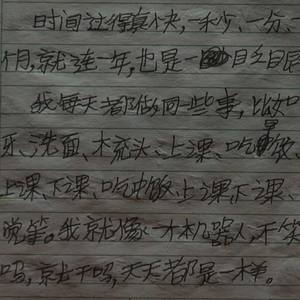 时间过得真快，一秒、一分、一
个月，就连一年，也是一目
我每天都做同一些事，比如
牙、洗面、木充头、上课、吃早饭、
上课、下课、吃中饭、上课、下课、
觉等。我就像一才机器人，不笑
吗，京尤干吗，天天都是一样。